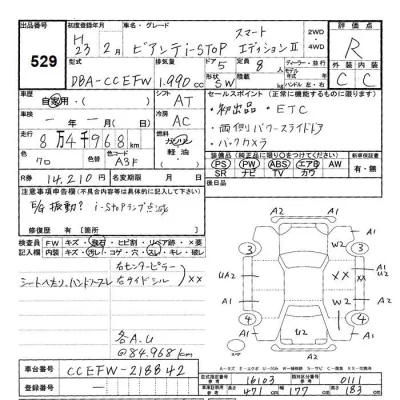 出品番号
529
初度登録年月
H 23 2月
車名・グレード
スマート
ビアンテi-STOP エディションⅡ
2WD
4WD
評価点
R
型式
DBA-CCEFW
排気量
1.990 cc
ドア
5
形状
SW
定員
8人
積載
kg
ディーラー・並行
ハンドル 左・右
外装
内装
C
C
車歴
自家用・
シフト
AT
車検
一年一月
冷房
AC
走行
8万4千968km
燃料
ガソリン
軽油
色
クロ
色コード
A3F
R券
14,210円
名変期限
月 日
セールスポイント(正常に機能するものに限ります)
・初出品・ETC
・両側パワースライドドア
・バックカメラ
装備品(純正品に限り○をつけてください)
新車時保証書
PS PW ABS エアB AW
SR ナビ TV レザー
有・無
後日品
注意事項申告欄(不具合内容等は具体的に記入下さい)
E/g 振動? i-Stopランプ点滅
修復歴 有【箇所 】
検査員
記入欄
FW キズ・飛石・ヒビ割・リペア跡・×要
内装 キズ・汚れ・コゲ・穴・スレ・キレ・破レ
右センターピラー
右サイドシル
××
シートヘタリ、ハンドルスレ
各A.U
@84.968km
A2
A1
A1
3
3
W2
A1
UA2
××
W2
A2
4
4
A1
U2
A1
A2
車台番号
CCEFW-218842
登録番号
型式指定番号
16103
類別区分番号
0111
長さ
471
幅
177
高さ
183